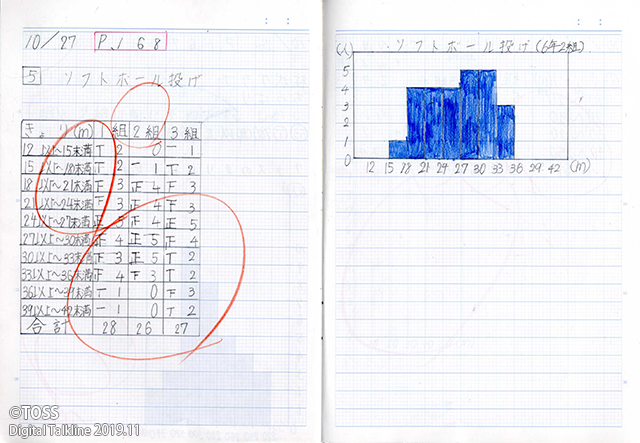 10/27 P.168
5 ソフトボール投げ
きょり(m) 1組 2組 3組
12以上~15未満 T 2 0 一 1
15以上~18未満 T 2 一 1 T 2
18以上~21未満 下 3 正 4 下 3
21以上~24未満 下 3 正 4 下 3
24以上~27未満 正 5 正 4 正 5
27以上~30未満 正 4 正 5 正 4
30以上~33未満 下 3 正 5 T 2
33以上~36未満 正 4 下 3 T 2
36以上~39未満 一 1 0 下 3
39以上~42未満 一 1 0 T 2
合計 28 26 27
©TOSS
Digital Talkline 2019.11
(人) ソフトボール投げ(6年2組)
5
4
3
2
1
0
12 15 18 21 24 27 30 33 36 39 42 (m)